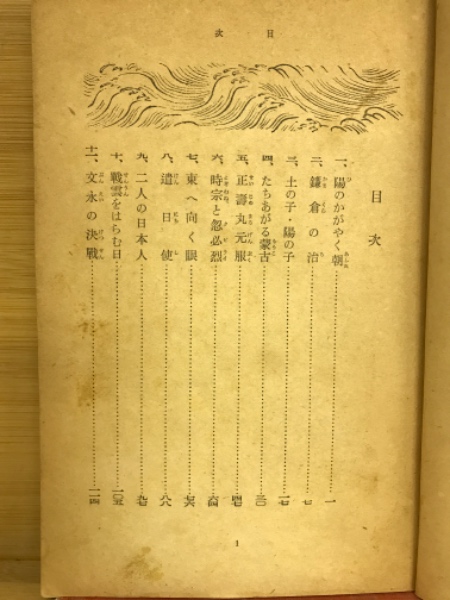 目次
目次
一、陽のかがやく朝……一
二、鎌倉の治……七
三、土の子・陽の子……一七
四、たちあがる蒙古……三〇
五、正壽丸元服……四七
六、時宗と忽必烈……六四
七、東へ向く眼……七六
八、遣日使……八八
九、二人の日本人……九七
十、戰雲をはらむ日……一〇五
十一、文永の決戰……一一四
1